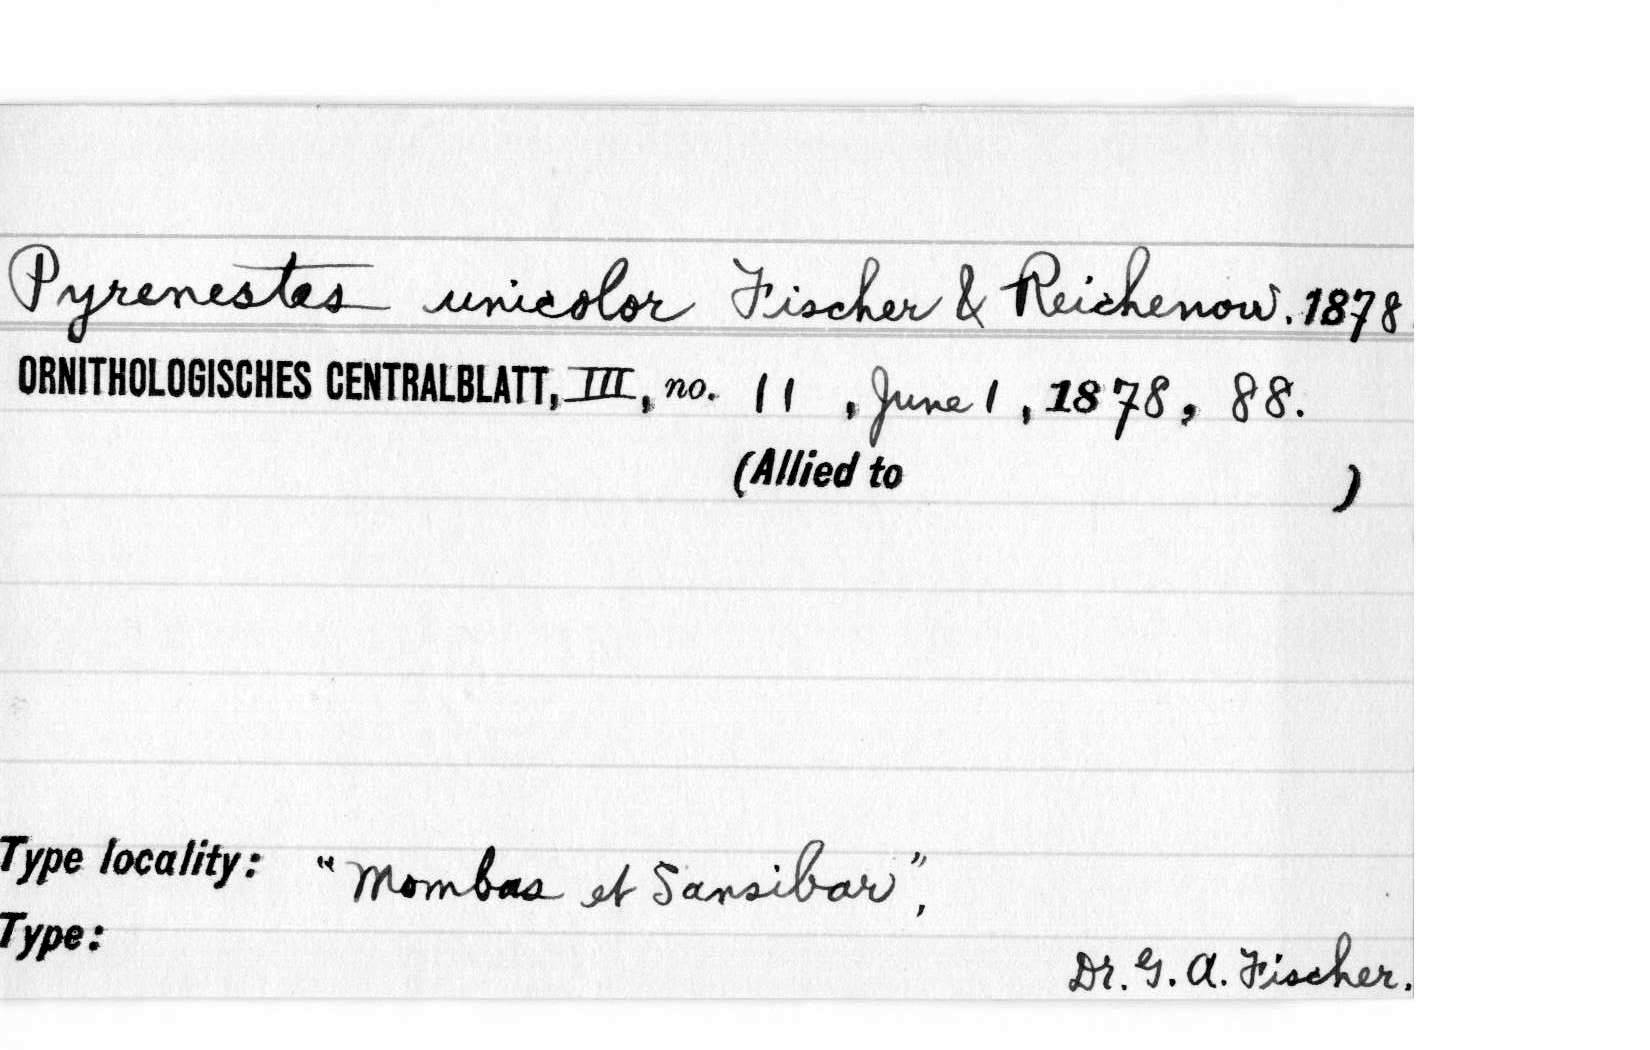 Pyrenestes unicolor Fischer & Reichenow. 1878
ORNITHOLOGISCHES CENTRALBLATT, III, no. 11, June 1, 1878, 88.
(Allied to )
Type locality: "Mombas et Sansibar",
Type:
Dr. G. A. Fischer.